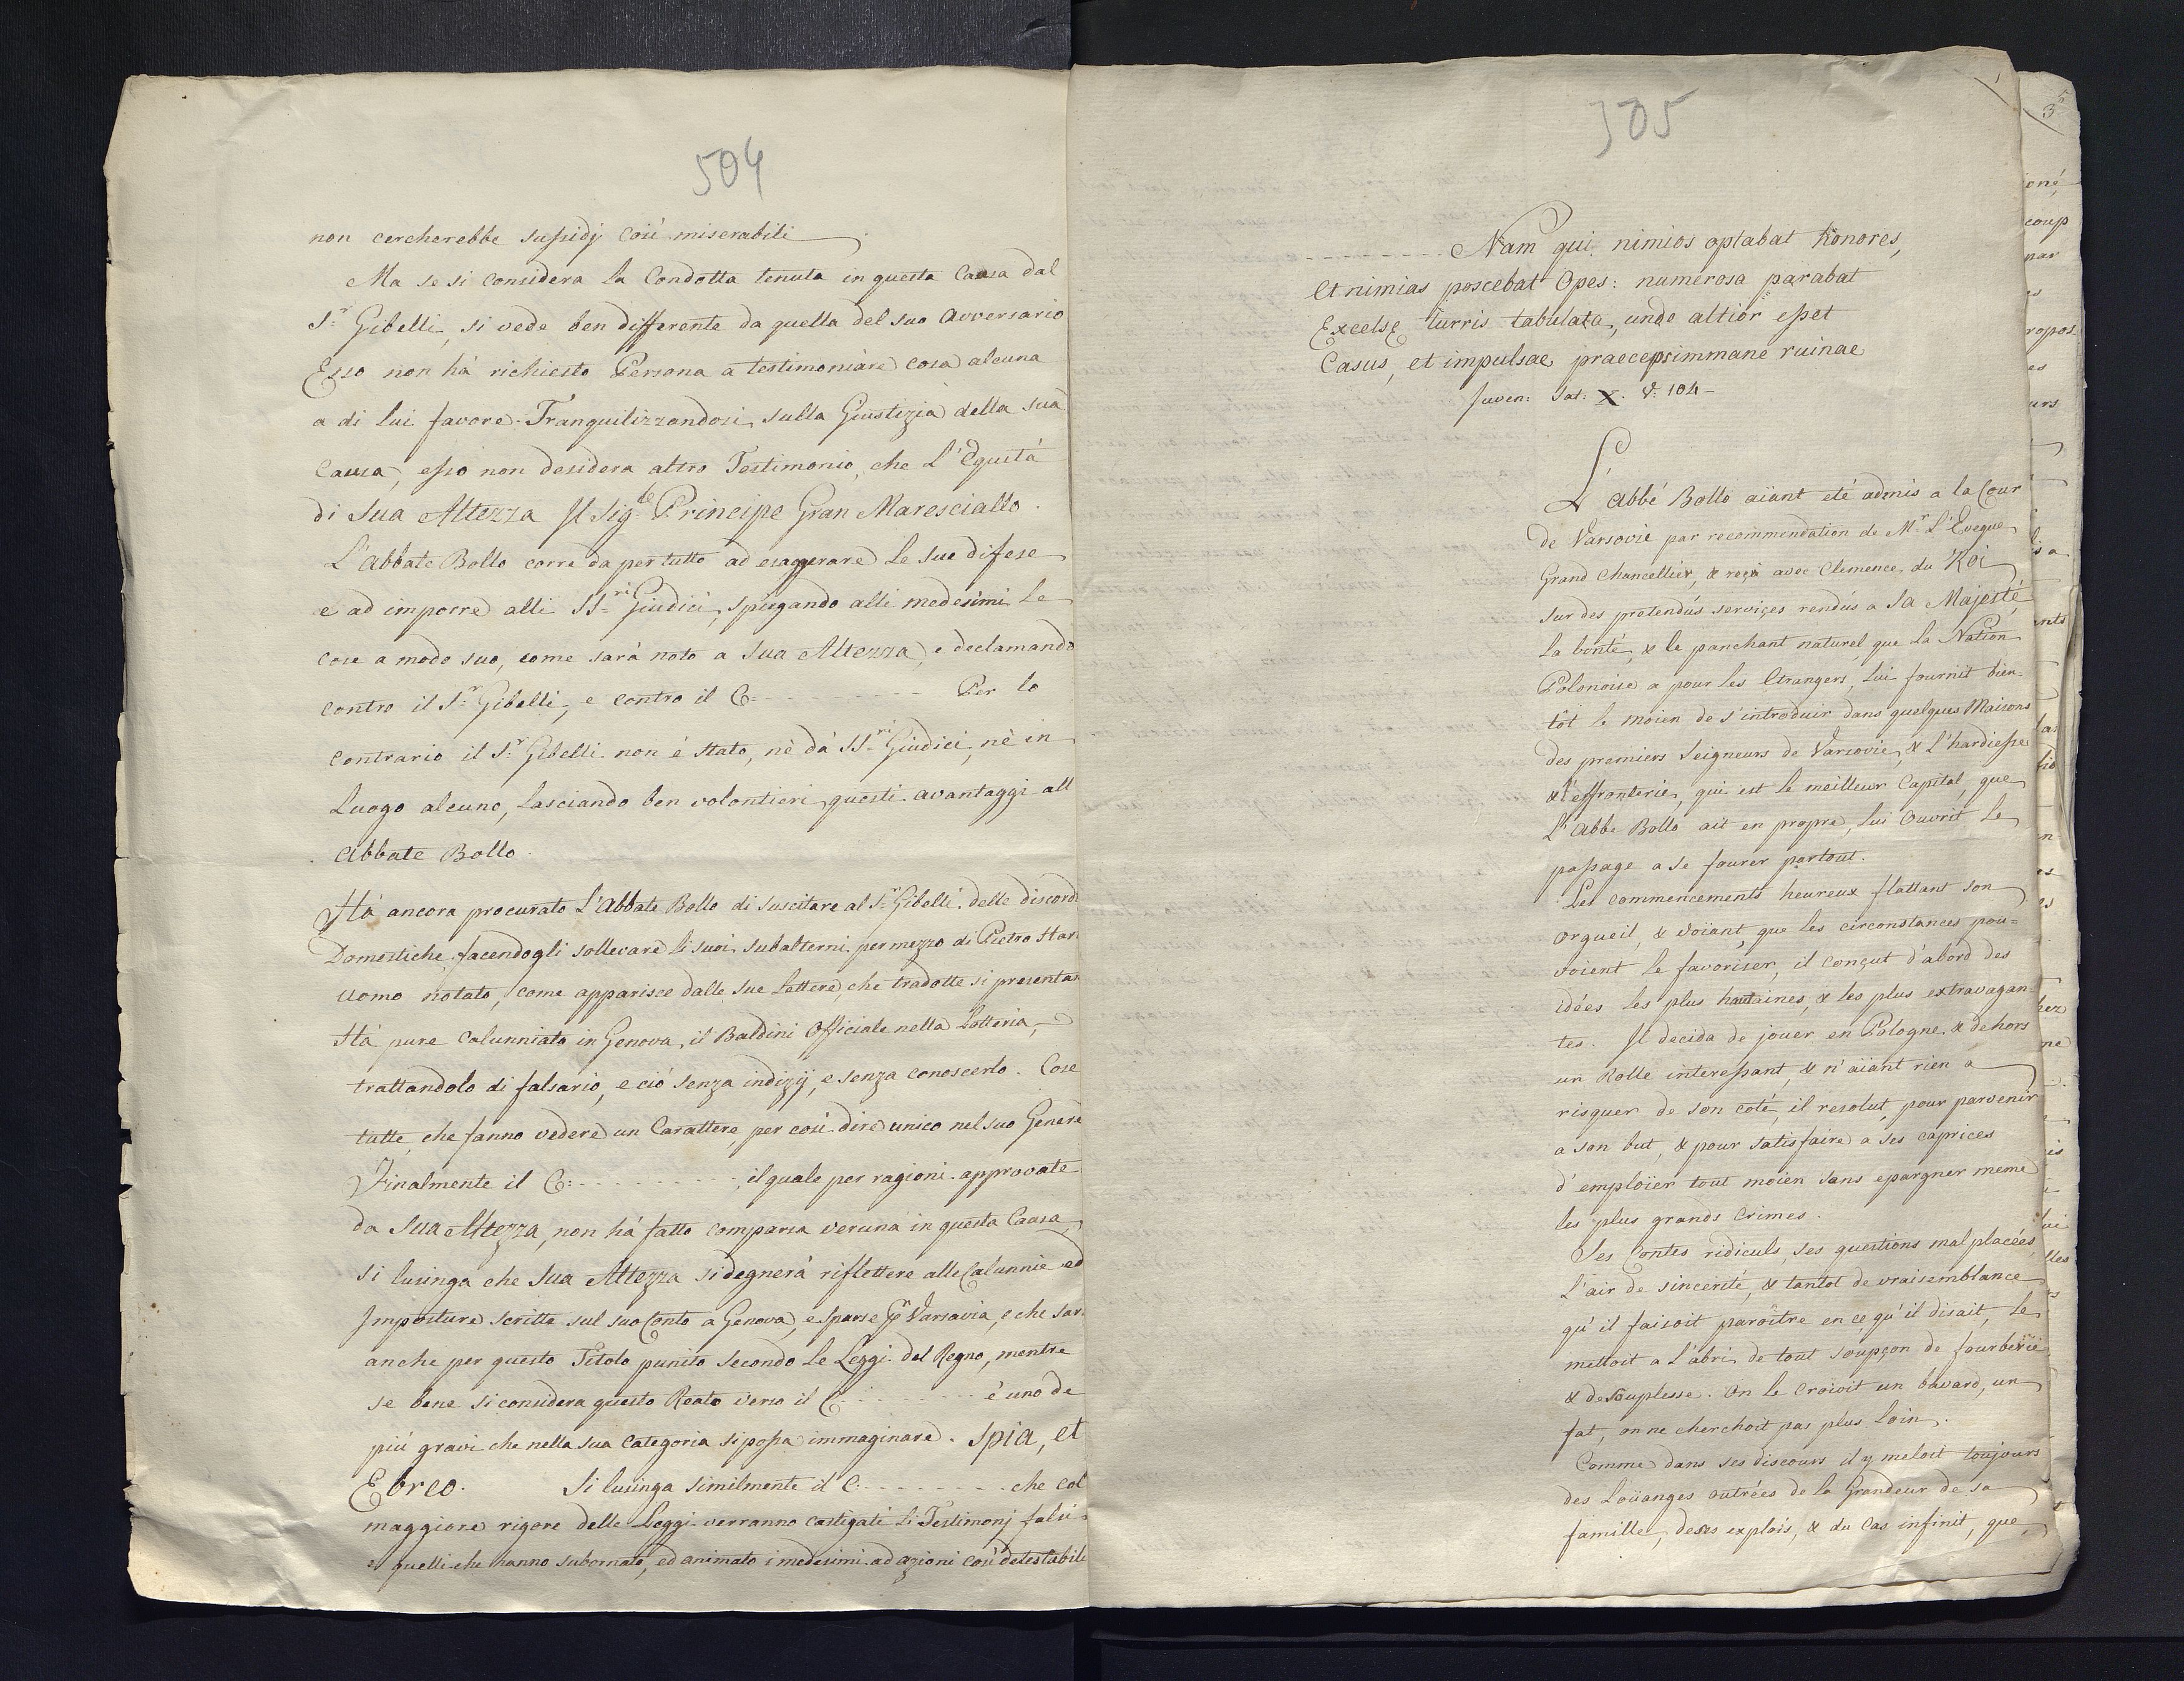 504
non cercherebbe sussidj così miserabili
Ma se si considera la Condotta tenuta in questa Causa dal
S.r Gibelli, si vede ben differente da quella del suo Avversario
Esso non hà richiesto Persona a testimoniare cosa alcuna
a di lui favore. Tranquilizzandosi sulla Giustizia della sua
Causa, esso non desidera altro Testimonio, che L'Equità
di Sua Altezza Il Sig.le Principe Gran Maresciallo.
L'Abbate Bollo corre da per tutto ad esaggerare le sue difese
e ad imporre alli SS.ri Giudici, spiegando alli medesimi le
cose a modo suo, come sarà noto a Sua Altezza, e declamando
contro il S.r Gibelli, e contro il C: - - - - - - - - Per lo
contrario il S.r Gibelli non è stato, nè dà SS.ri Giudici, nè in
Luogo alcuno, lasciando ben volontieri questi avantaggi all
Abbate Bollo.
Hà ancora procurato L'Abbate Bollo di suscitare al S.r Gibelli delle discord
Domestiche, facendogli sollevare li suoi subalterni per mezzo di Pietro Har
Uomo notato, come apparisce dalle sue Lettere, che tradotte si presenta
Hà pure calunniato in Genova, il Baldini Officiale nella Lotteria,
trattandolo di falsario, e ciò senza indizij, e senza conoscerlo. Cose
tutte, che fanno vedere un Carattere, per così dire unico nel suo Genere
Finalmente il C: - - - - - - - - -, il quale per ragioni approvate
da Sua Altezza, non hà fatto comparsa veruna in questa Causa,
si lusinga che Sua Altezza si degnerà riflettere alle Calunnie ed
Imposture scritte sul suo Conto a Genova, e sparse p Varsavia, e che sar
anche per questo Titolo punito secondo Le Leggi del Regno, mentre
se bene si considera questo Reato verso il C: - - - - - - - è uno de
più gravi che nella sua categoria si possa immaginare. Spia, et
Ebreo. Si lusinga similmente il C: - - - - - - - - che col
maggiore rigore delle Leggi verranno castigati li Testimonj falsi
e quelli che hanno subornato, ed animato i medesimi ad azioni così detestabile
505
- - - - - - - - - Nam qui nimios optabat Honores,
Et nimias poscebat Opes: numerosa parabat
Excelsę turris tabulata, unde altior esset
Casus, et impulsae praeceps immane ruinae
Juven: Sat: X. V: 104 -
L'Abbé Bollo aïant eté admis a la Cour
de Varsovie par recommendation de M.r L'Eveque
Grand Chancellier, & reçû avec Clemence du Roi
sur des pretendús serviçes rendús a Sa Majesté,
la bonté, & le panchant naturel que la Nation
Polonoise a pour les Etrangers, lui fournit bien-
tôt le moïen de s'introduir dans quelques Maisons
des premiers Seigneurs de Varsovie, & l'hardiesse
& l'effronterie, qui est le meilleur Capital, que
L'Abbe Bollo ait en propre, lui ouvrit le
passage a se fourer partout.
Les commencements heureux flattant son
orgueil, & voïant, que les circonstances pou=
voient le favoriser, il conçut d'abord des
idées les plus hautaines, & les plus extravagan-
tes. Il decida de jouer en Pologne & dehors
un Rolle interessant, & n'aïant rien a
risquer de son coté, il resolut, pour parvenir
a son but, & pour satisfaire a ses caprices
d'emploïer tout moïen sans epargner meme
les plus grands Crimes.
Ses Contes ridiculs, ses questions mal placées,
L'air de sincerité, & tantot de vraisemblance
qu'il faisoit paroître en ce qu'il disait, le
mettoit a l'abri de tout soupçon de fourberie
& de souplesse. On le croïoit un bavard, un
fat, on ne cherchoit pas plus loin.
Comme dans ses discours il y meloit toujours
des Loüanges outrées de la Grandeur de sa
famille, de ses explois, & du Cas infinit, que
3
oné
coup
par
es
propos